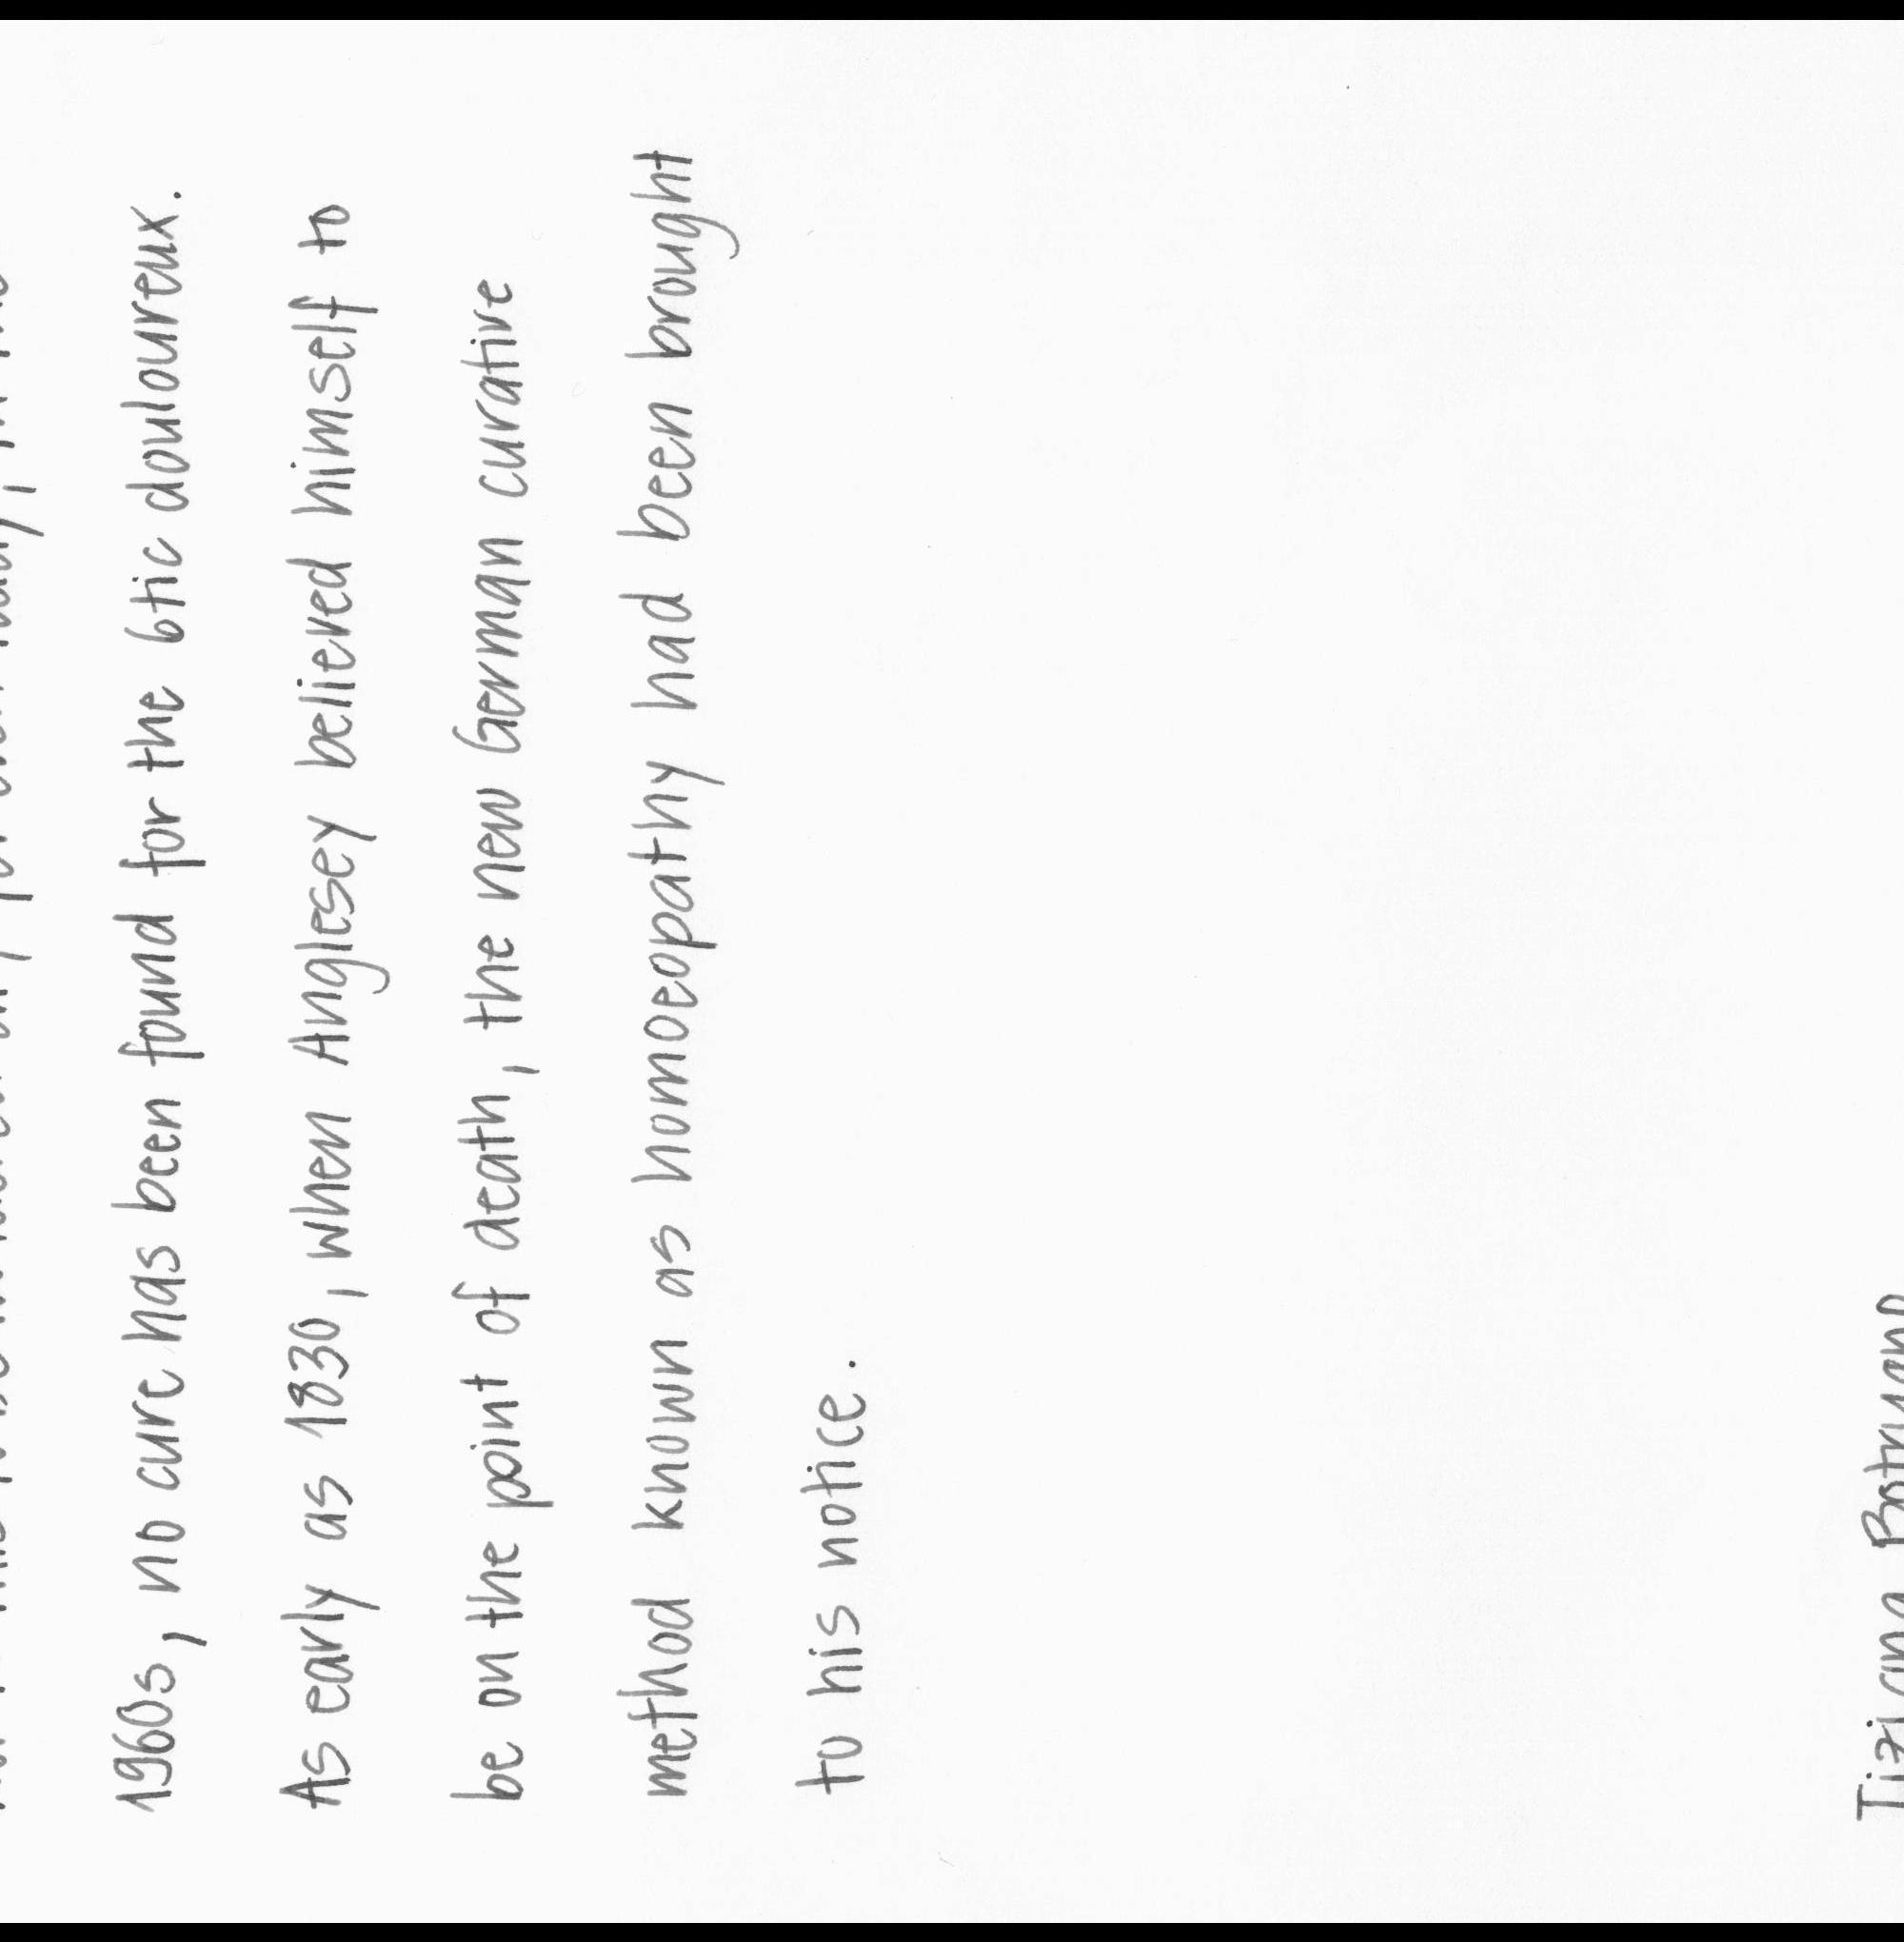 1960s, no cure has been found for the 6tic douloureux.
As early as 1830, when Anglesey believed himself to
be on the point of death, the new German curative
method known as homoeopathy had been brought
to his notice.